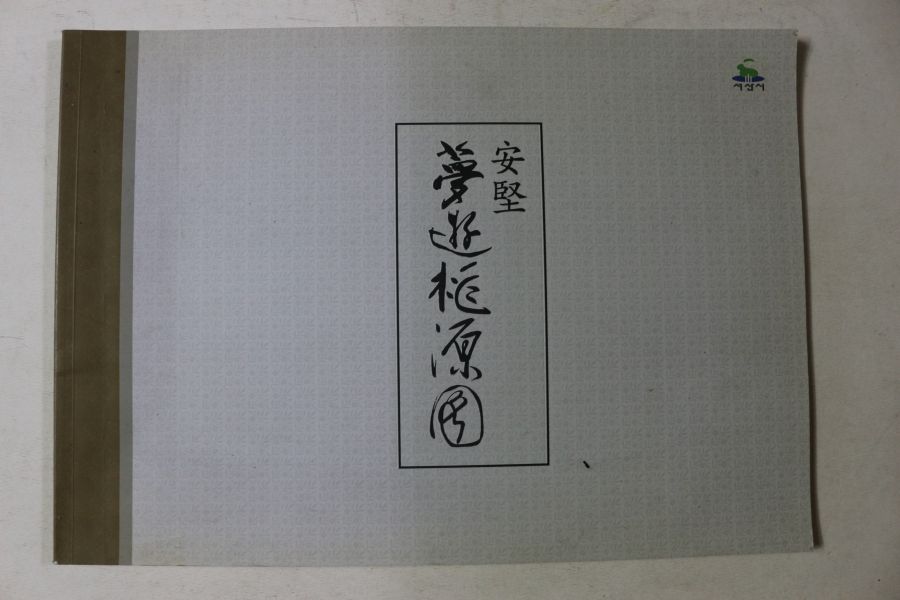 서산시
安堅
夢遊桃源図